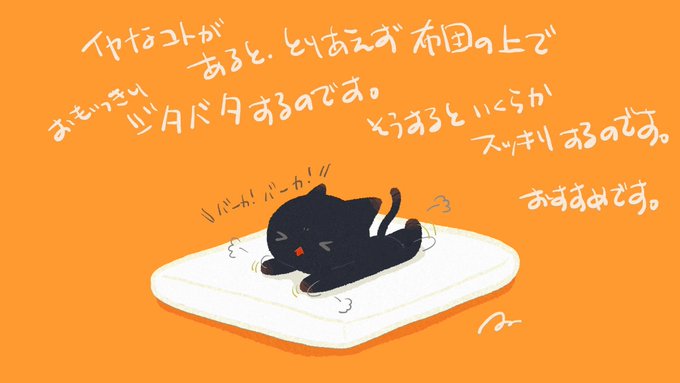 イヤなコトが
あると、とりあえず 布団の上で
おもいっきり
ジタバタするのです。
そうすると いくらか
スッキリ するのです。
おすすめです。
バーカ! バーカ!